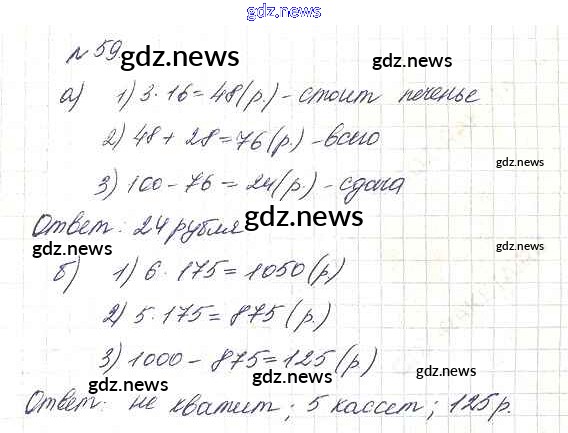 gdz.news
№ 59 gdz.news gdz.news
а) 1) 3 · 16 = 48 (р.) - стоит печенье
2) 48 + 28 = 76 (р.) - всего
gdz.news
3) 100 - 76 = 24 (р.) - сдача
Ответ: 24 рубля gdz.news
gdz.news gdz.news
б) 1) 6 · 175 = 1050 (р)
2) 5 · 175 = 875 (р.)
3) 1000 - 875 = 125 (р.)
gdz.news gdz.news gdz.news
Ответ: не хватит; 5 кассет; 125 р.